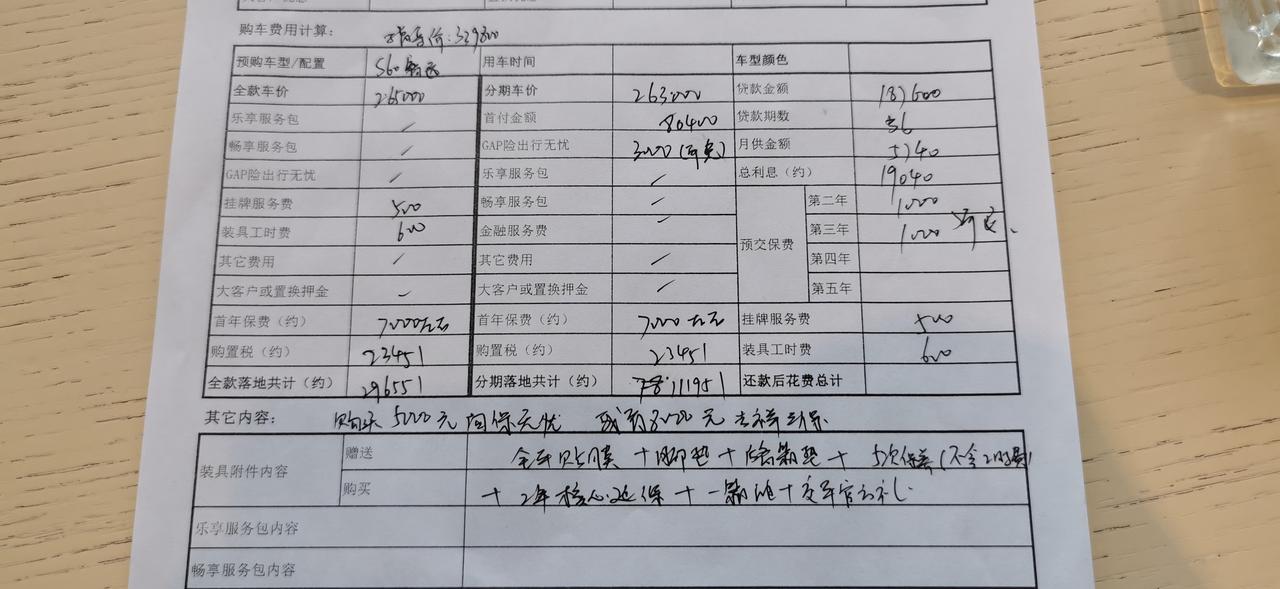 购车费用计算: 指导价:339800
预购车型/配置 S60 用车时间 车型颜色
全款车价 265000 分期车价 263000 贷款金额 182600
乐享服务包 / 首付金额 80400 贷款期数 36
畅享服务包 / GAP险出行无忧 3000(可免) 月供金额 5740
GAP险出行无忧 / 乐享服务包 / 总利息(约) 19040
挂牌服务费 500 畅享服务包 / 预交保费 第二年 1000
装具工时费 600 金融服务费 / 第三年 1000
其它费用 / 其它费用 / 第四年
大客户或置换押金 / 大客户或置换押金 / 第五年
首年保费(约) 7000左右 首年保费(约) 7000左右 挂牌服务费 500
购置税(约) 23451 购置税(约) 23451 装具工时费 600
全款落地共计(约) 296551 分期落地共计(约) 111951 还款后花费总计
其它内容: 购买5000元 无忧 或有3000元
装具附件内容 赠送 全车贴膜+脚垫+后备箱垫+5次保养(不含工时费)
购买 +2年核心延保+一箱油+交车官方礼.
乐享服务包内容
畅享服务包内容